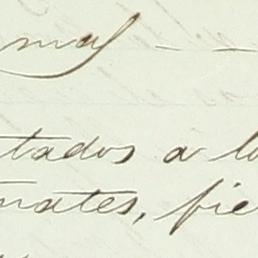 mas
tados a lo
mates, fie